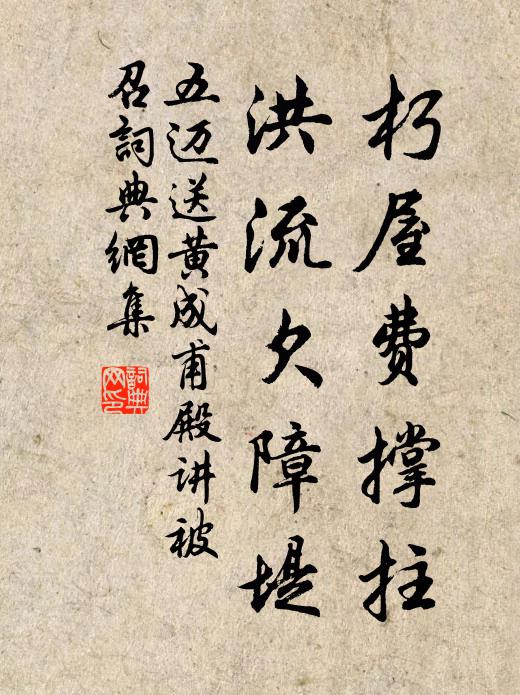 朽屋费撑拄
洪流欠障堤
五迈送黄成甫殿讲被
召詞典網集
詞典
网印